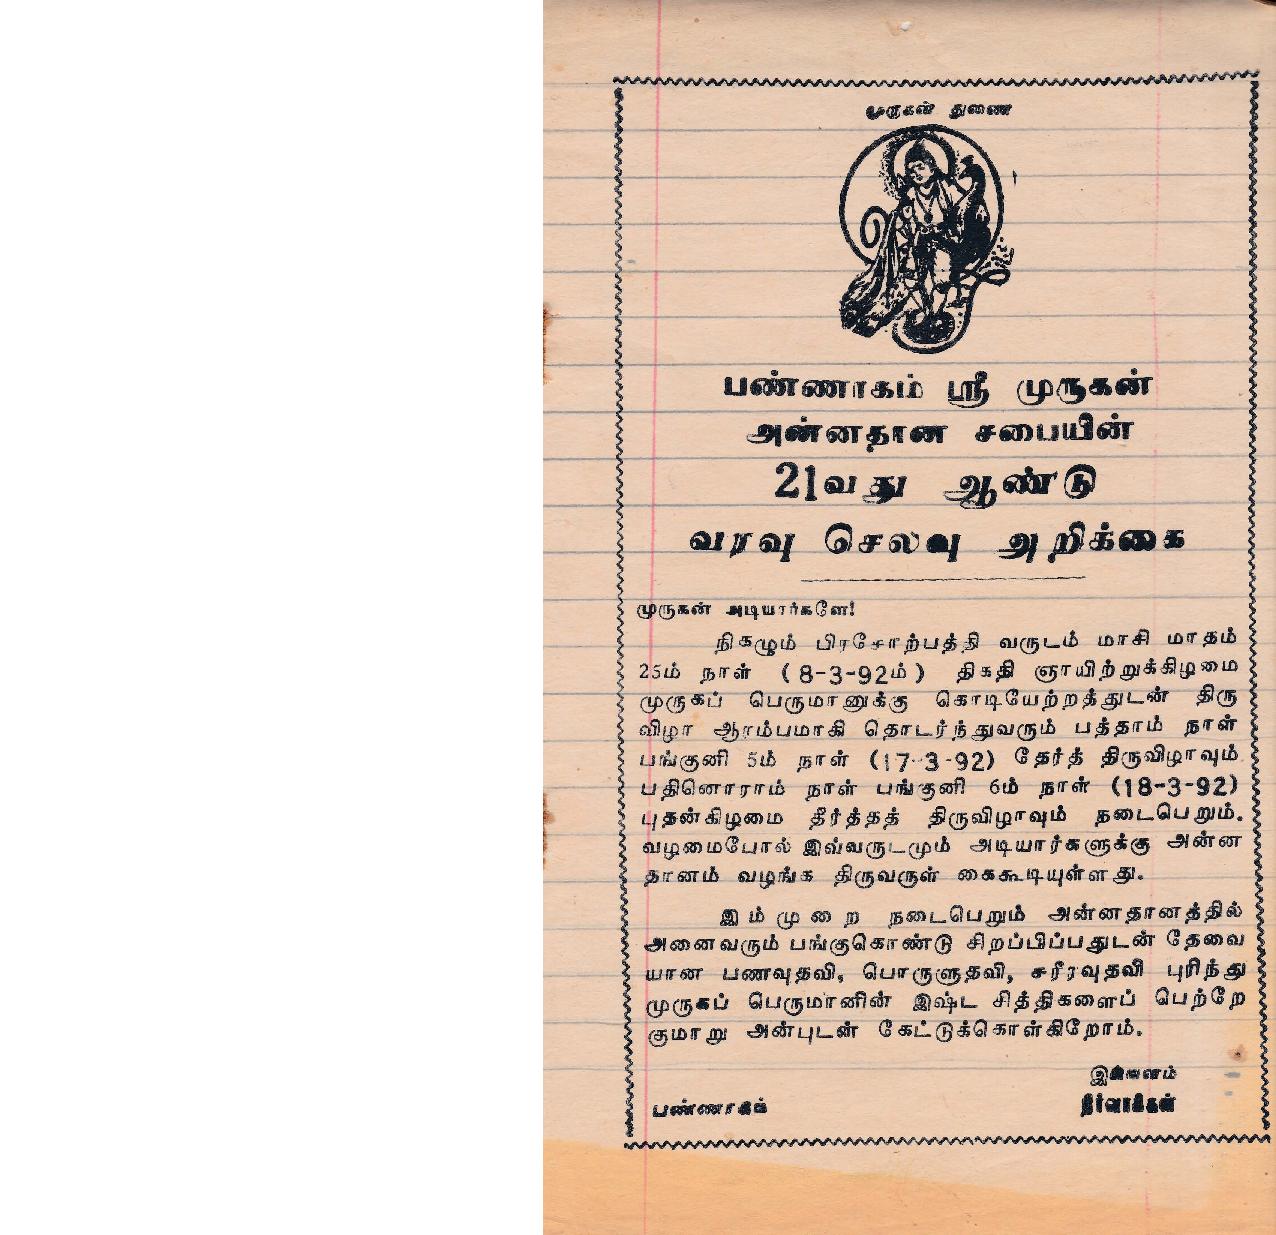 முருகன் துணை
பண்ணாகம் ஸ்ரீ முருகன்
அன்னதான சபையின்
21வது ஆண்டு
வரவு செலவு அறிக்கை
முருகன் அடியார்களே!
நிகழும் பிரசோற்பத்தி வருடம் மாசி மாதம்
25ம் நாள் (8-3-92ம்) திகதி ஞாயிற்றுக்கிழமை
முருகப் பெருமானுக்கு கொடியேற்றத்துடன் திரு
விழா ஆரம்பமாகி தொடர்ந்துவரும் பத்தாம் நாள்
பங்குனி 5ம் நாள் (17-3-92) தேர்த் திருவிழாவும்
பதினொராம் நாள் பங்குனி 6ம் நாள் (18-3-92)
புதன்கிழமை தீர்த்தத் திருவிழாவும் நடைபெறும்.
வழமைபோல் இவ்வருடமும் அடியார்களுக்கு அன்ன
தானம் வழங்க திருவருள் கைகூடியுள்ளது.
இம்முறை நடைபெறும் அன்னதானத்தில்
அனைவரும் பங்குகொண்டு சிறப்பிப்பதுடன் தேவை
யான பணவுதவி, பொருளுதவி, சரீரவுதவி புரிந்து
முருகப் பெருமானின் இஷ்ட சித்திகளைப் பெற்றே
குமாறு அன்புடன் கேட்டுக்கொள்கிறோம்.
இங்ஙனம்
பண்ணாகம் நிர்வாகிகள்